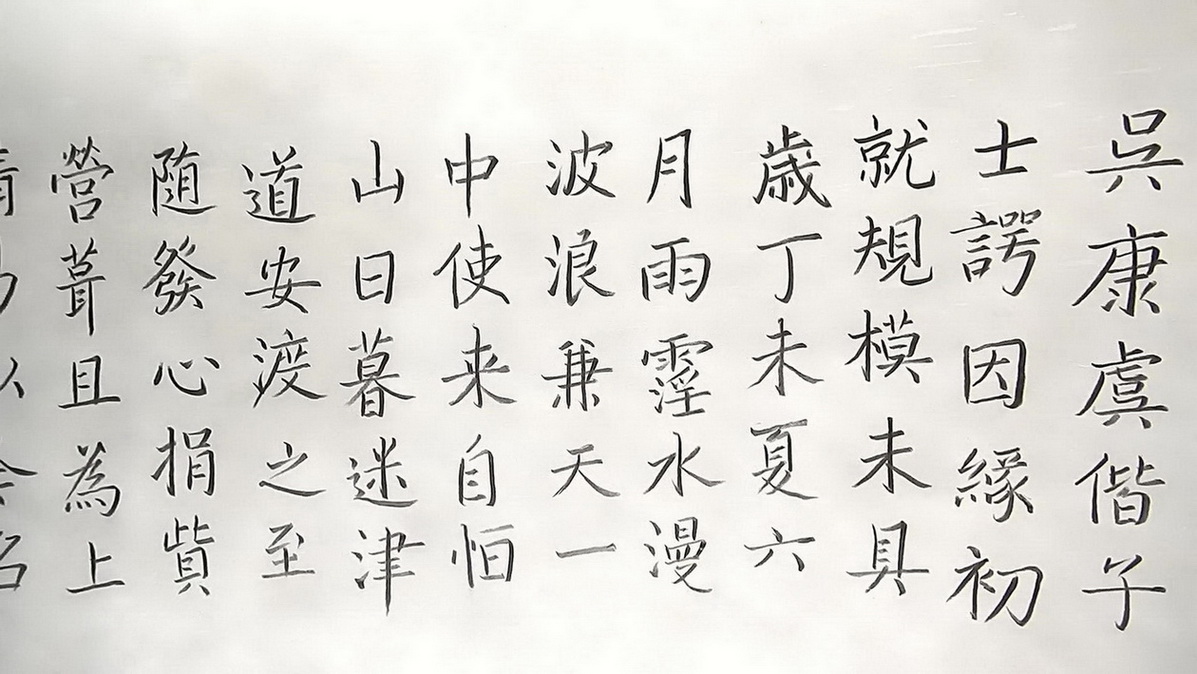 吳康虞偕子
士諤因緣初
就規模未具
歲丁未夏六
月雨霪水漫
波浪兼天一
中使来自怕
山日暮迷津
道安渡之至
随發心捐貲
營葺且為上